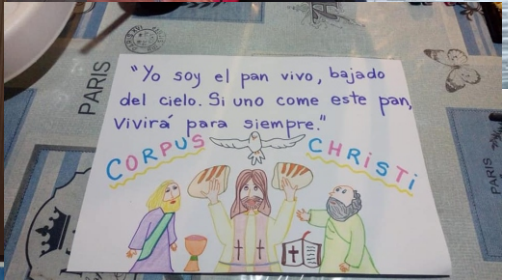 "Yo soy el pan vivo, bajado
del cielo. Si uno come este pan,
vivirá para siempre."
CORPUS CHRISTI
PARIS
PARIS